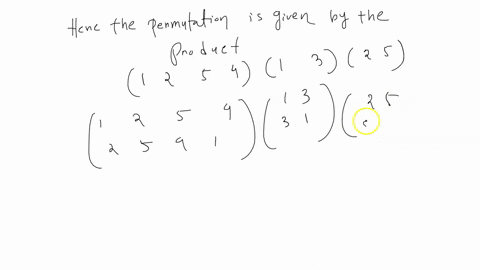 Hene the permutation is given by the
product
(1 2 5 4) (1 3) (2 5)
(1 2 5 4) (1 3) (2 5
(2 5 4 1) (3 1) (